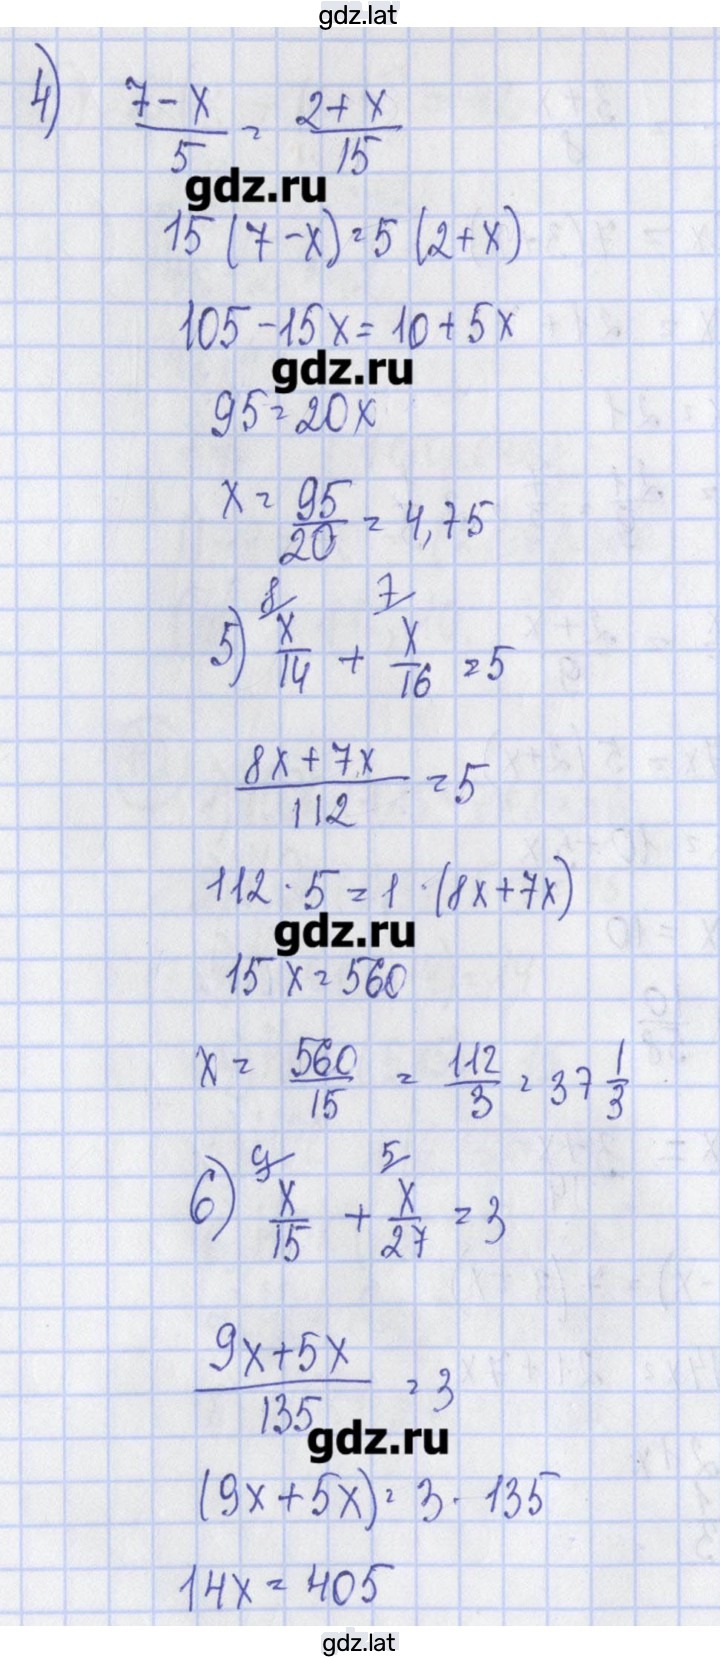 gdz.lat
4) (7-x)/5 = (2+x)/15
gdz.ru
15(7-x)=5(2+x)
105-15x=10+5x
gdz.ru
95=20x
x = 95/20 = 4,75
8 7
5) x/14 + x/16 = 5
(8x+7x)/112 = 5
112·5=1·(8x+7x)
gdz.ru
15x=560
x = 560/15 = 112/3 = 37 1/3
9 5
6) x/15 + x/27 = 3
(9x+5x)/135 = 3
gdz.ru
(9x+5x)=3·135
14x=405
gdz.lat